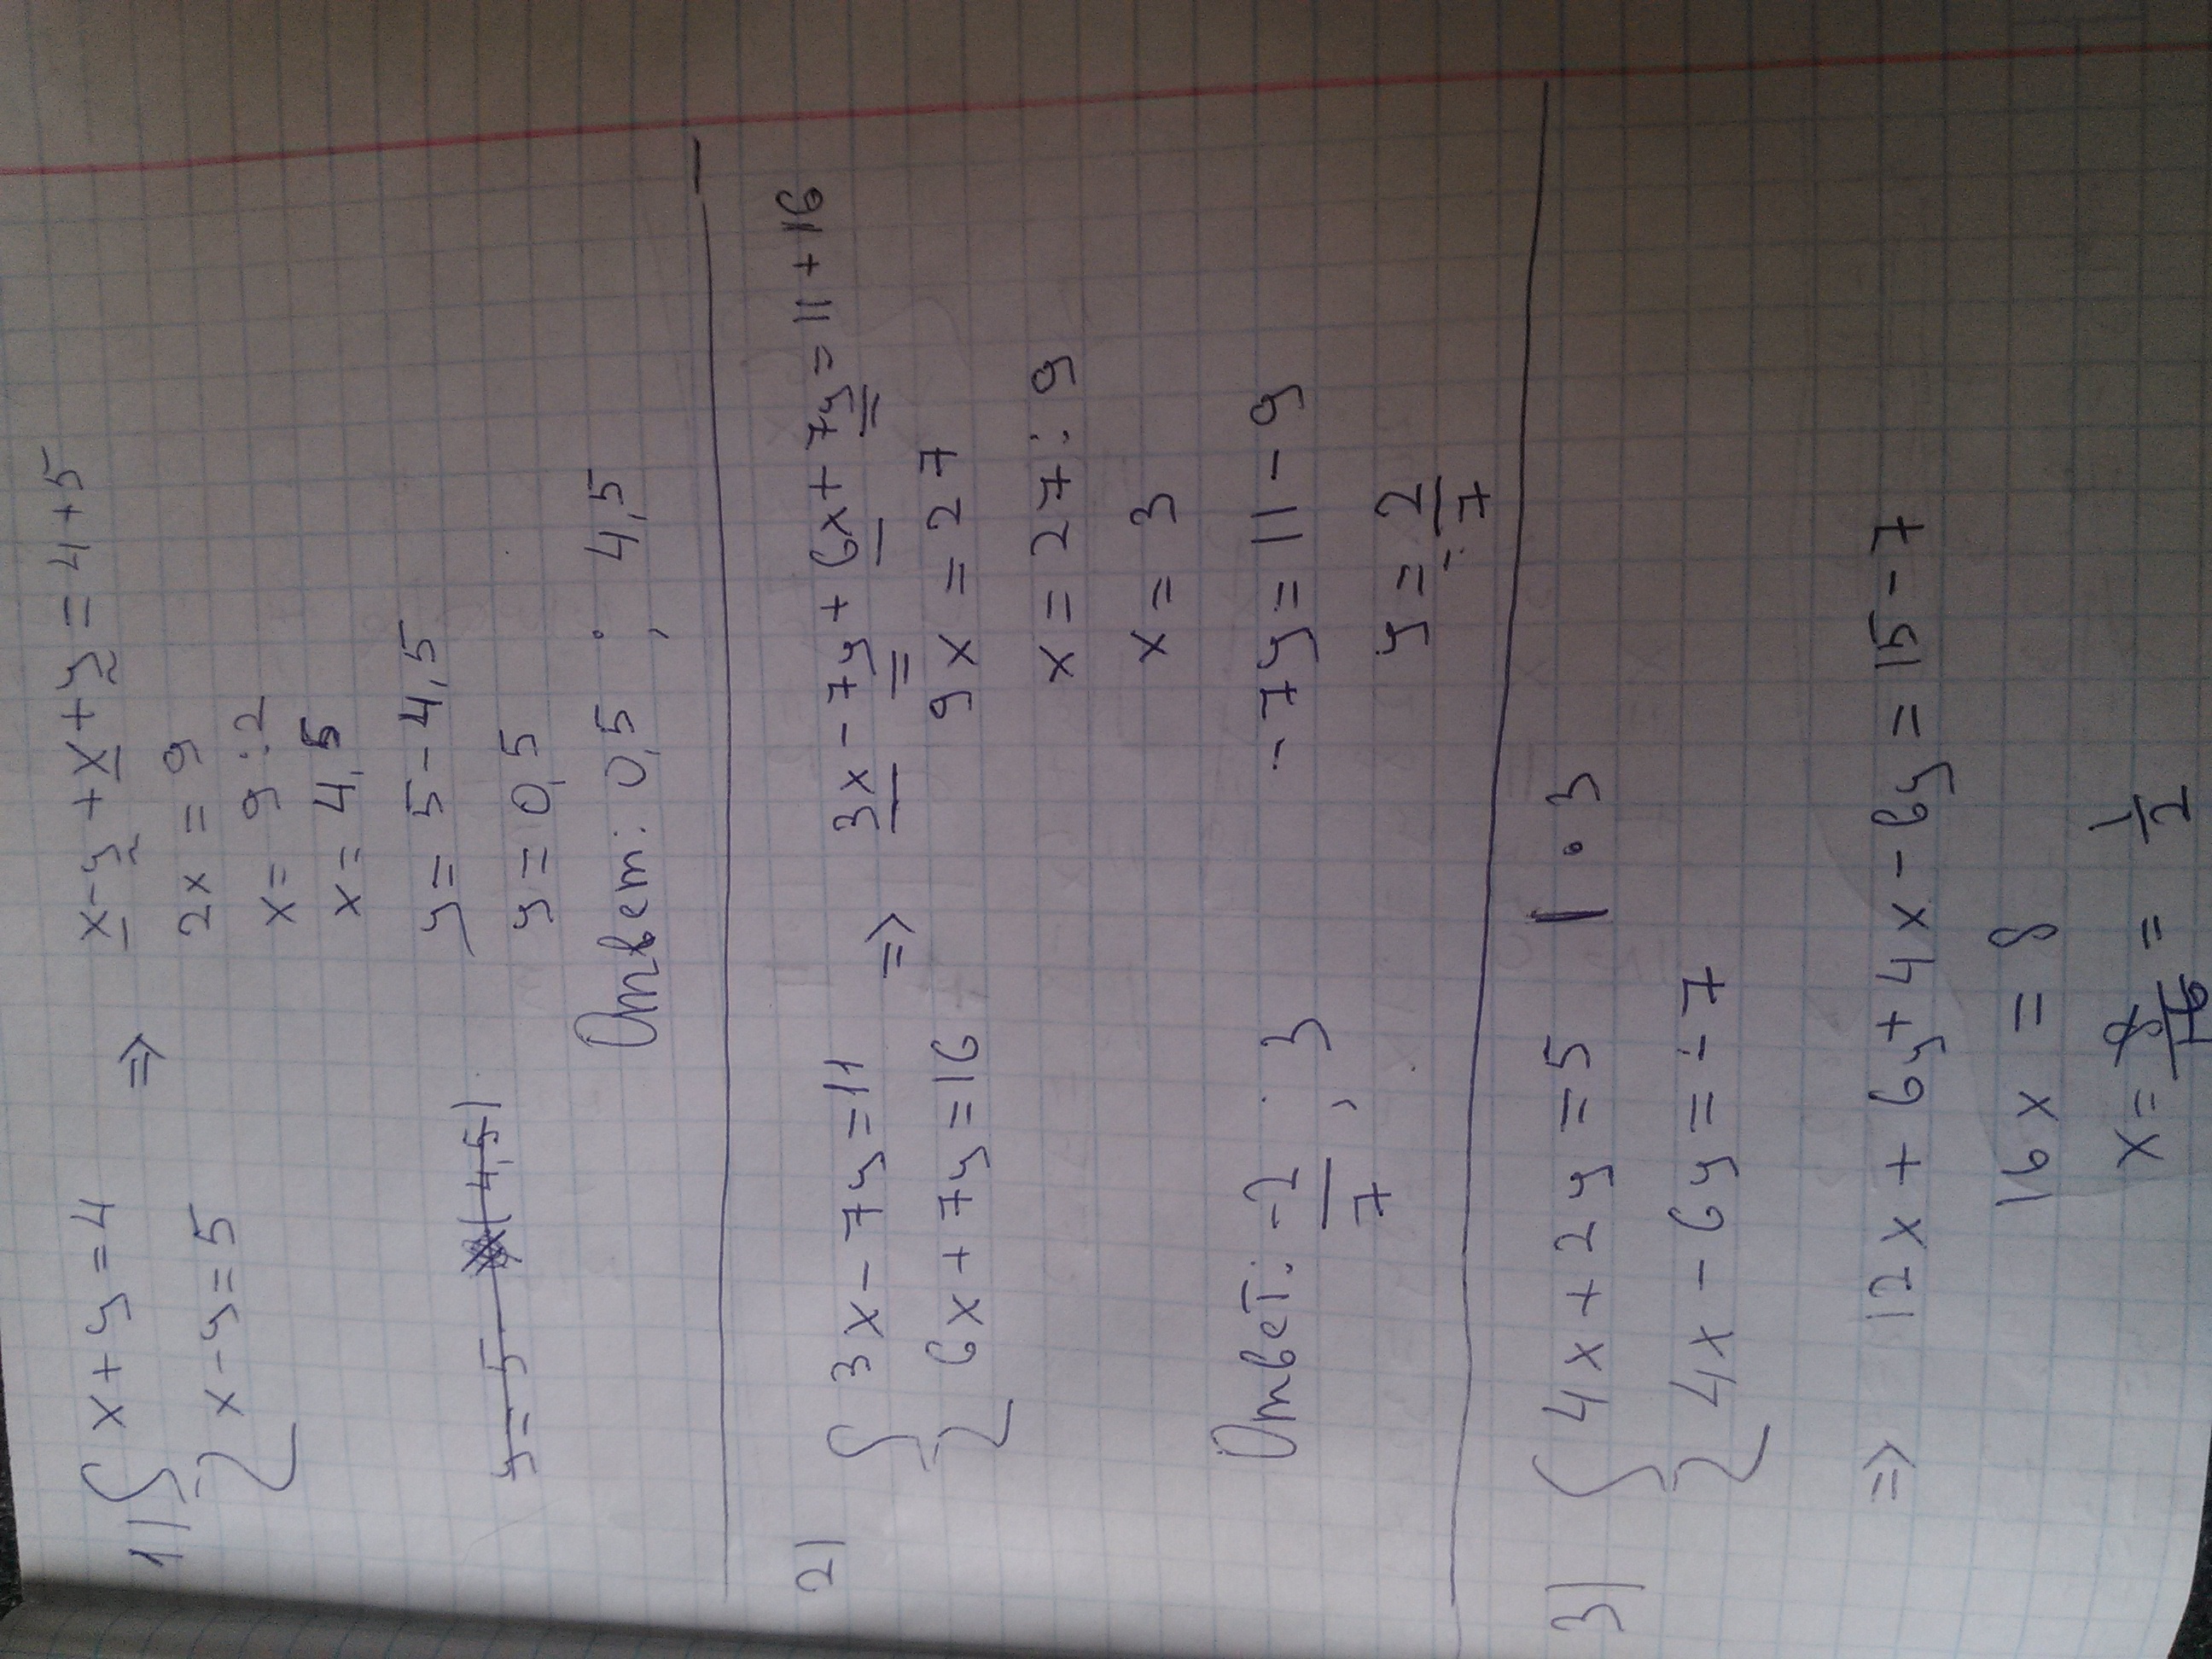 1) { x + y = 4 => x - y + x + y = 4 + 5
x - y = 5
2x = 9
x = 9 : 2
x = 4,5
y = 5 - 4,5
y = 5 - 4,5
y = 0,5
Ответ: 0,5 ; 4,5
2) { 3x - 7y = 11 => 3x - 7y + 6x + 7y = 11 + 16
6x + 7y = 16
9x = 27
x = 27 : 9
x = 3
-7y = 11 - 9
y = 2/-7
Ответ: -2/7 ; 3
3) { 4x + 2y = 5 | · 3
4x - 6y = -7
=> 12x + 6y + 4x - 6y = 15 - 7
16x = 8
x = 8/16 = 1/2